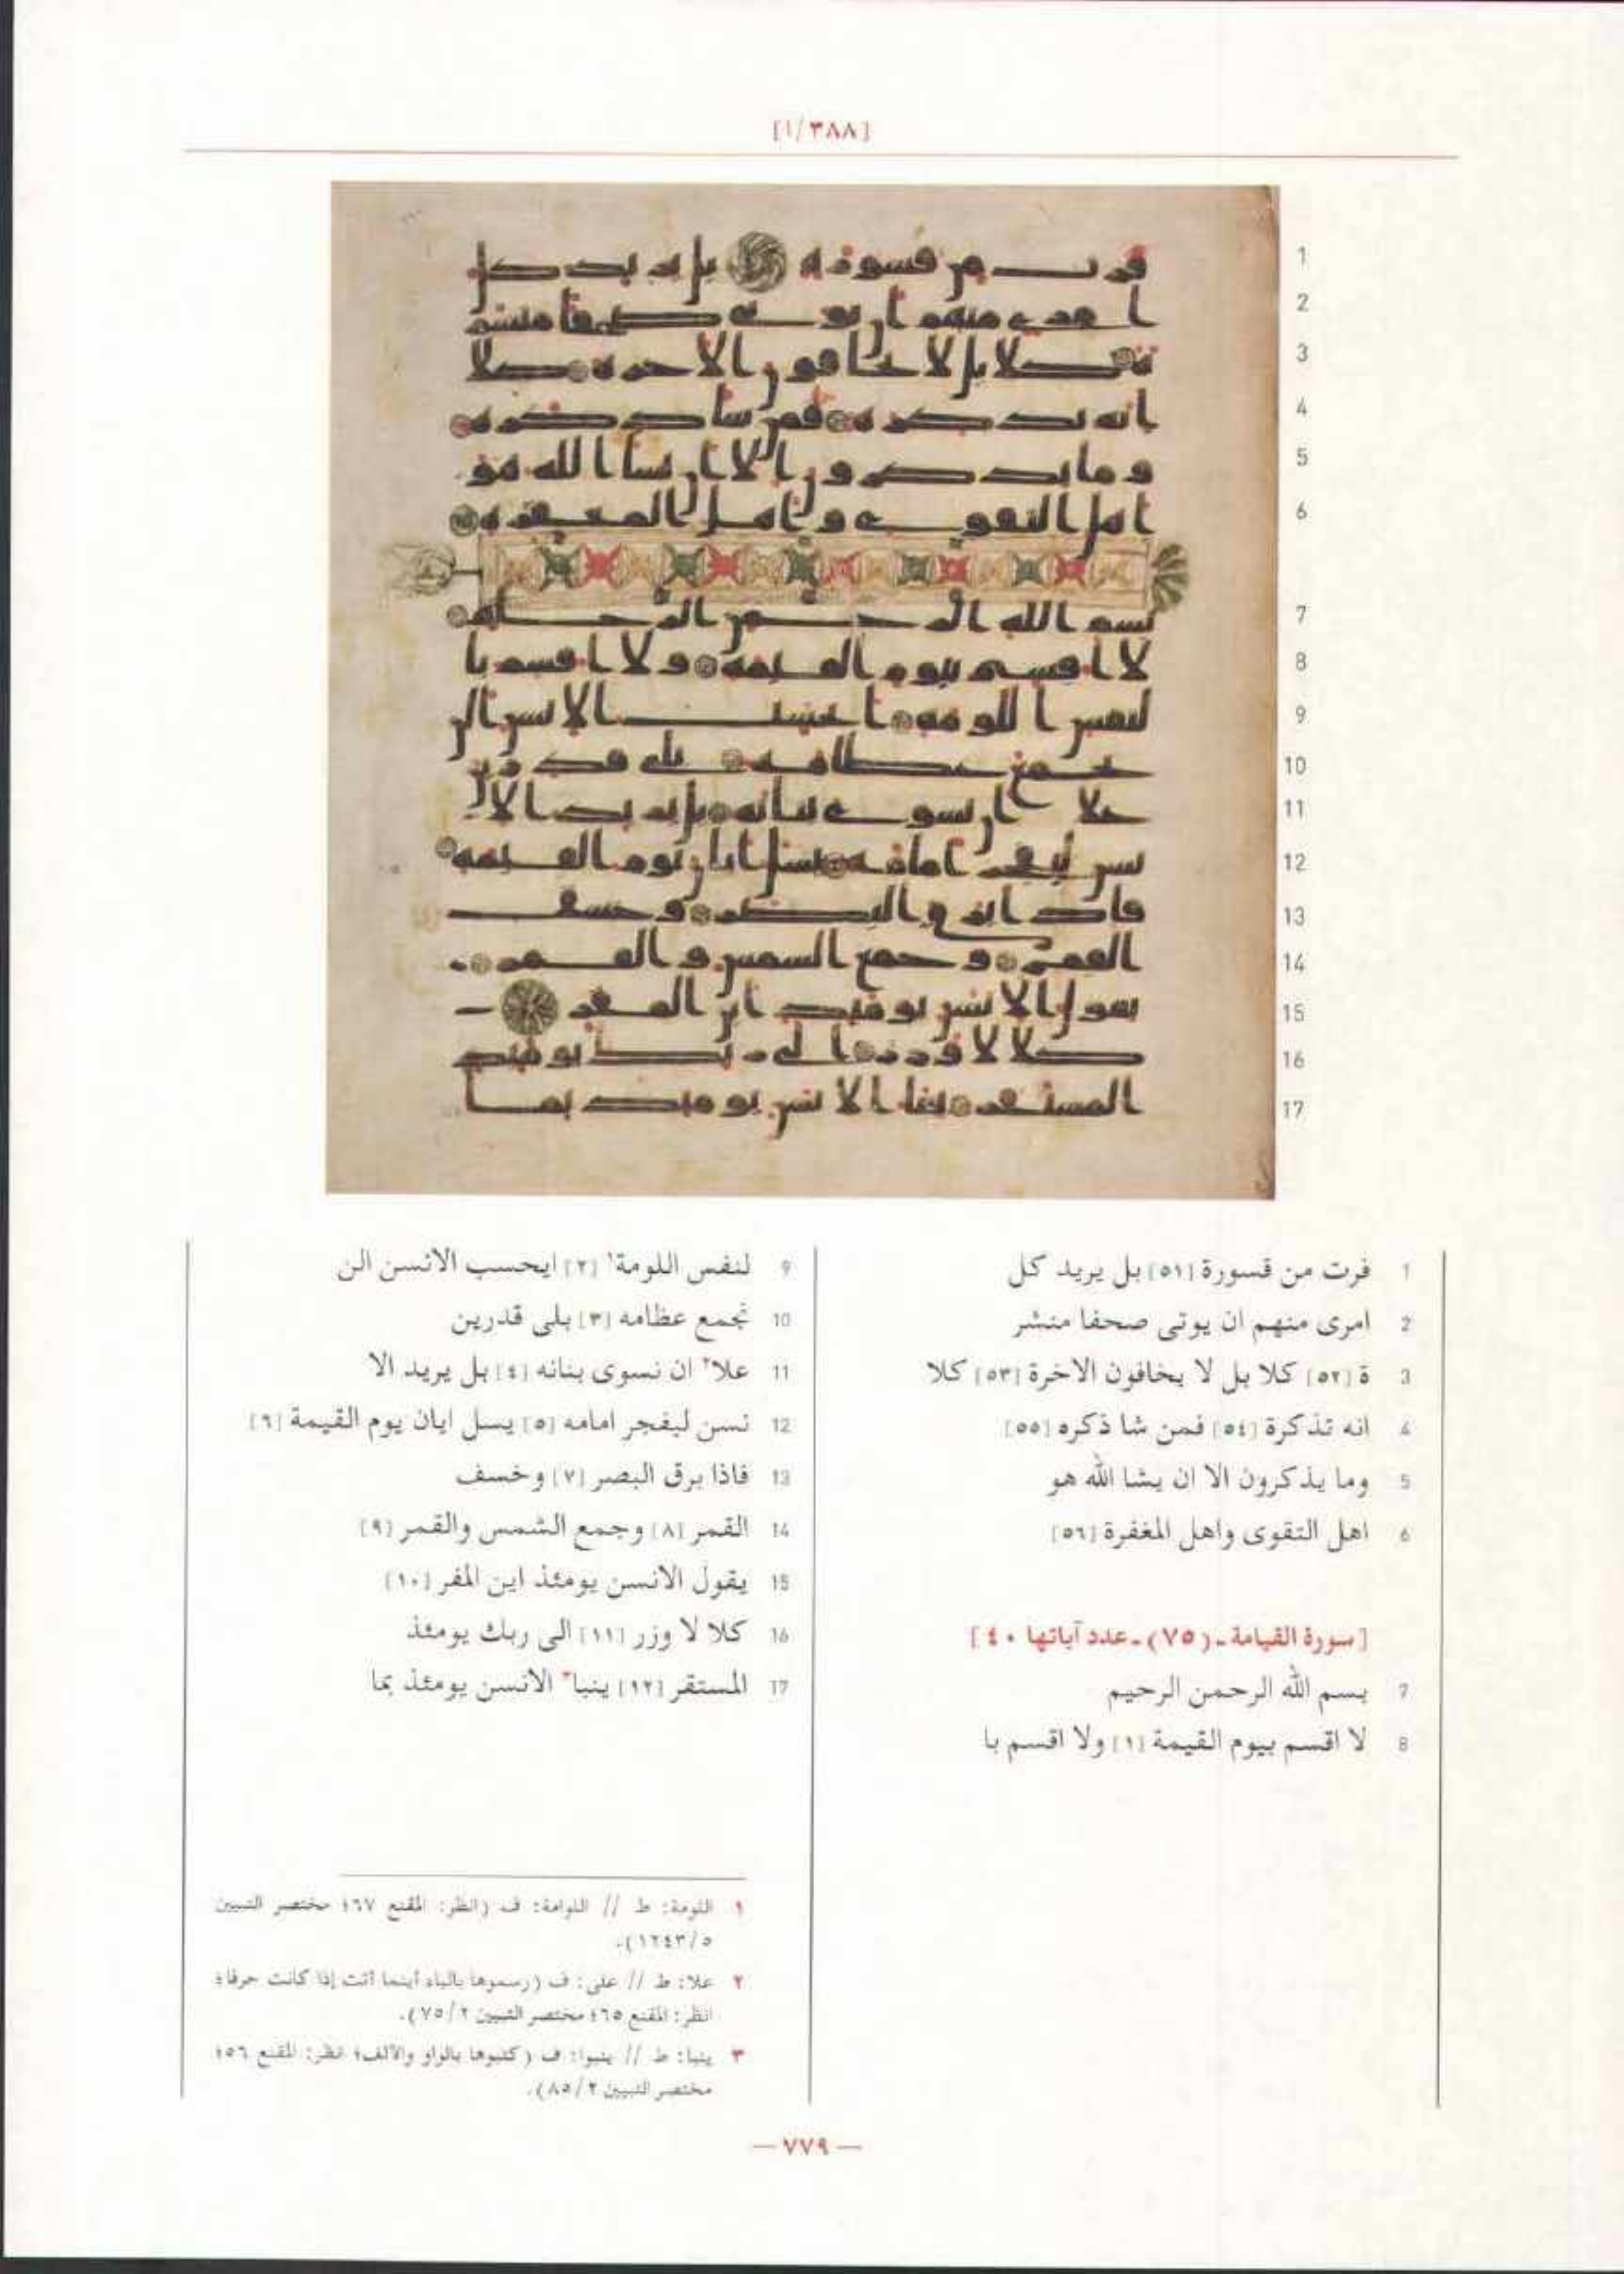 [٣٨٨/ا]
1
2
3
4
5
6
7
8
9
10
11
12
13
14
15
16
17
1 فرت من قسورة [٥١] بل يريد كل
2 امرى منهم ان يوتى صحفا منشر
3 ة [٥٢] كلا بل لا يخافون الاخرة [٥٣] كلا
4 انه تذكرة [٥٤] فمن شا ذكره [٥٥]
5 وما يذكرون الا ان يشا الله هو
6 اهل التقوى واهل المغفرة [٥٦]
[سورة القيامة ـ (٧٥) ـ عدد آياتها ٤٠]
7 بسم الله الرحمن الرحيم
8 لا اقسم بيوم القيمة [١] ولا اقسم با
9 لنفس اللومة١ [٢] ايحسب الانسن الن
10 نجمع عظامه [٣] بلى قدرين
11 علا٢ ان نسوى بنانه [٤] بل يريد الا
12 نسن ليفجر امامه [٥] يسل ايان يوم القيمة [٦]
13 فاذا برق البصر [٧] وخسف
14 القمر [٨] وجمع الشمس والقمر [٩]
15 يقول الانسن يومئذ اين المفر [١٠]
16 كلا لا وزر [١١] الى ربك يومئذ
17 المستقر [١٢] ينبا٣ الانسن يومئذ بما
١ اللومة: ط // اللوامة: ف (انظر: المقنع ٦٧؛ مختصر التبيين
٥/١٢٤٣).
٢ علا: ط // على: ف (رسموها بالياء أينما أتت إذا كانت حرفا؛
انظر: المقنع ٦٥؛ مختصر التبيين ٢/٧٥).
٣ ينبا: ط // ينبوا: ف (كتبوها بالواو والألف؛ انظر: المقنع ٥٦؛
مختصر التبيين ٢/٨٥).
— ٧٧٩ —